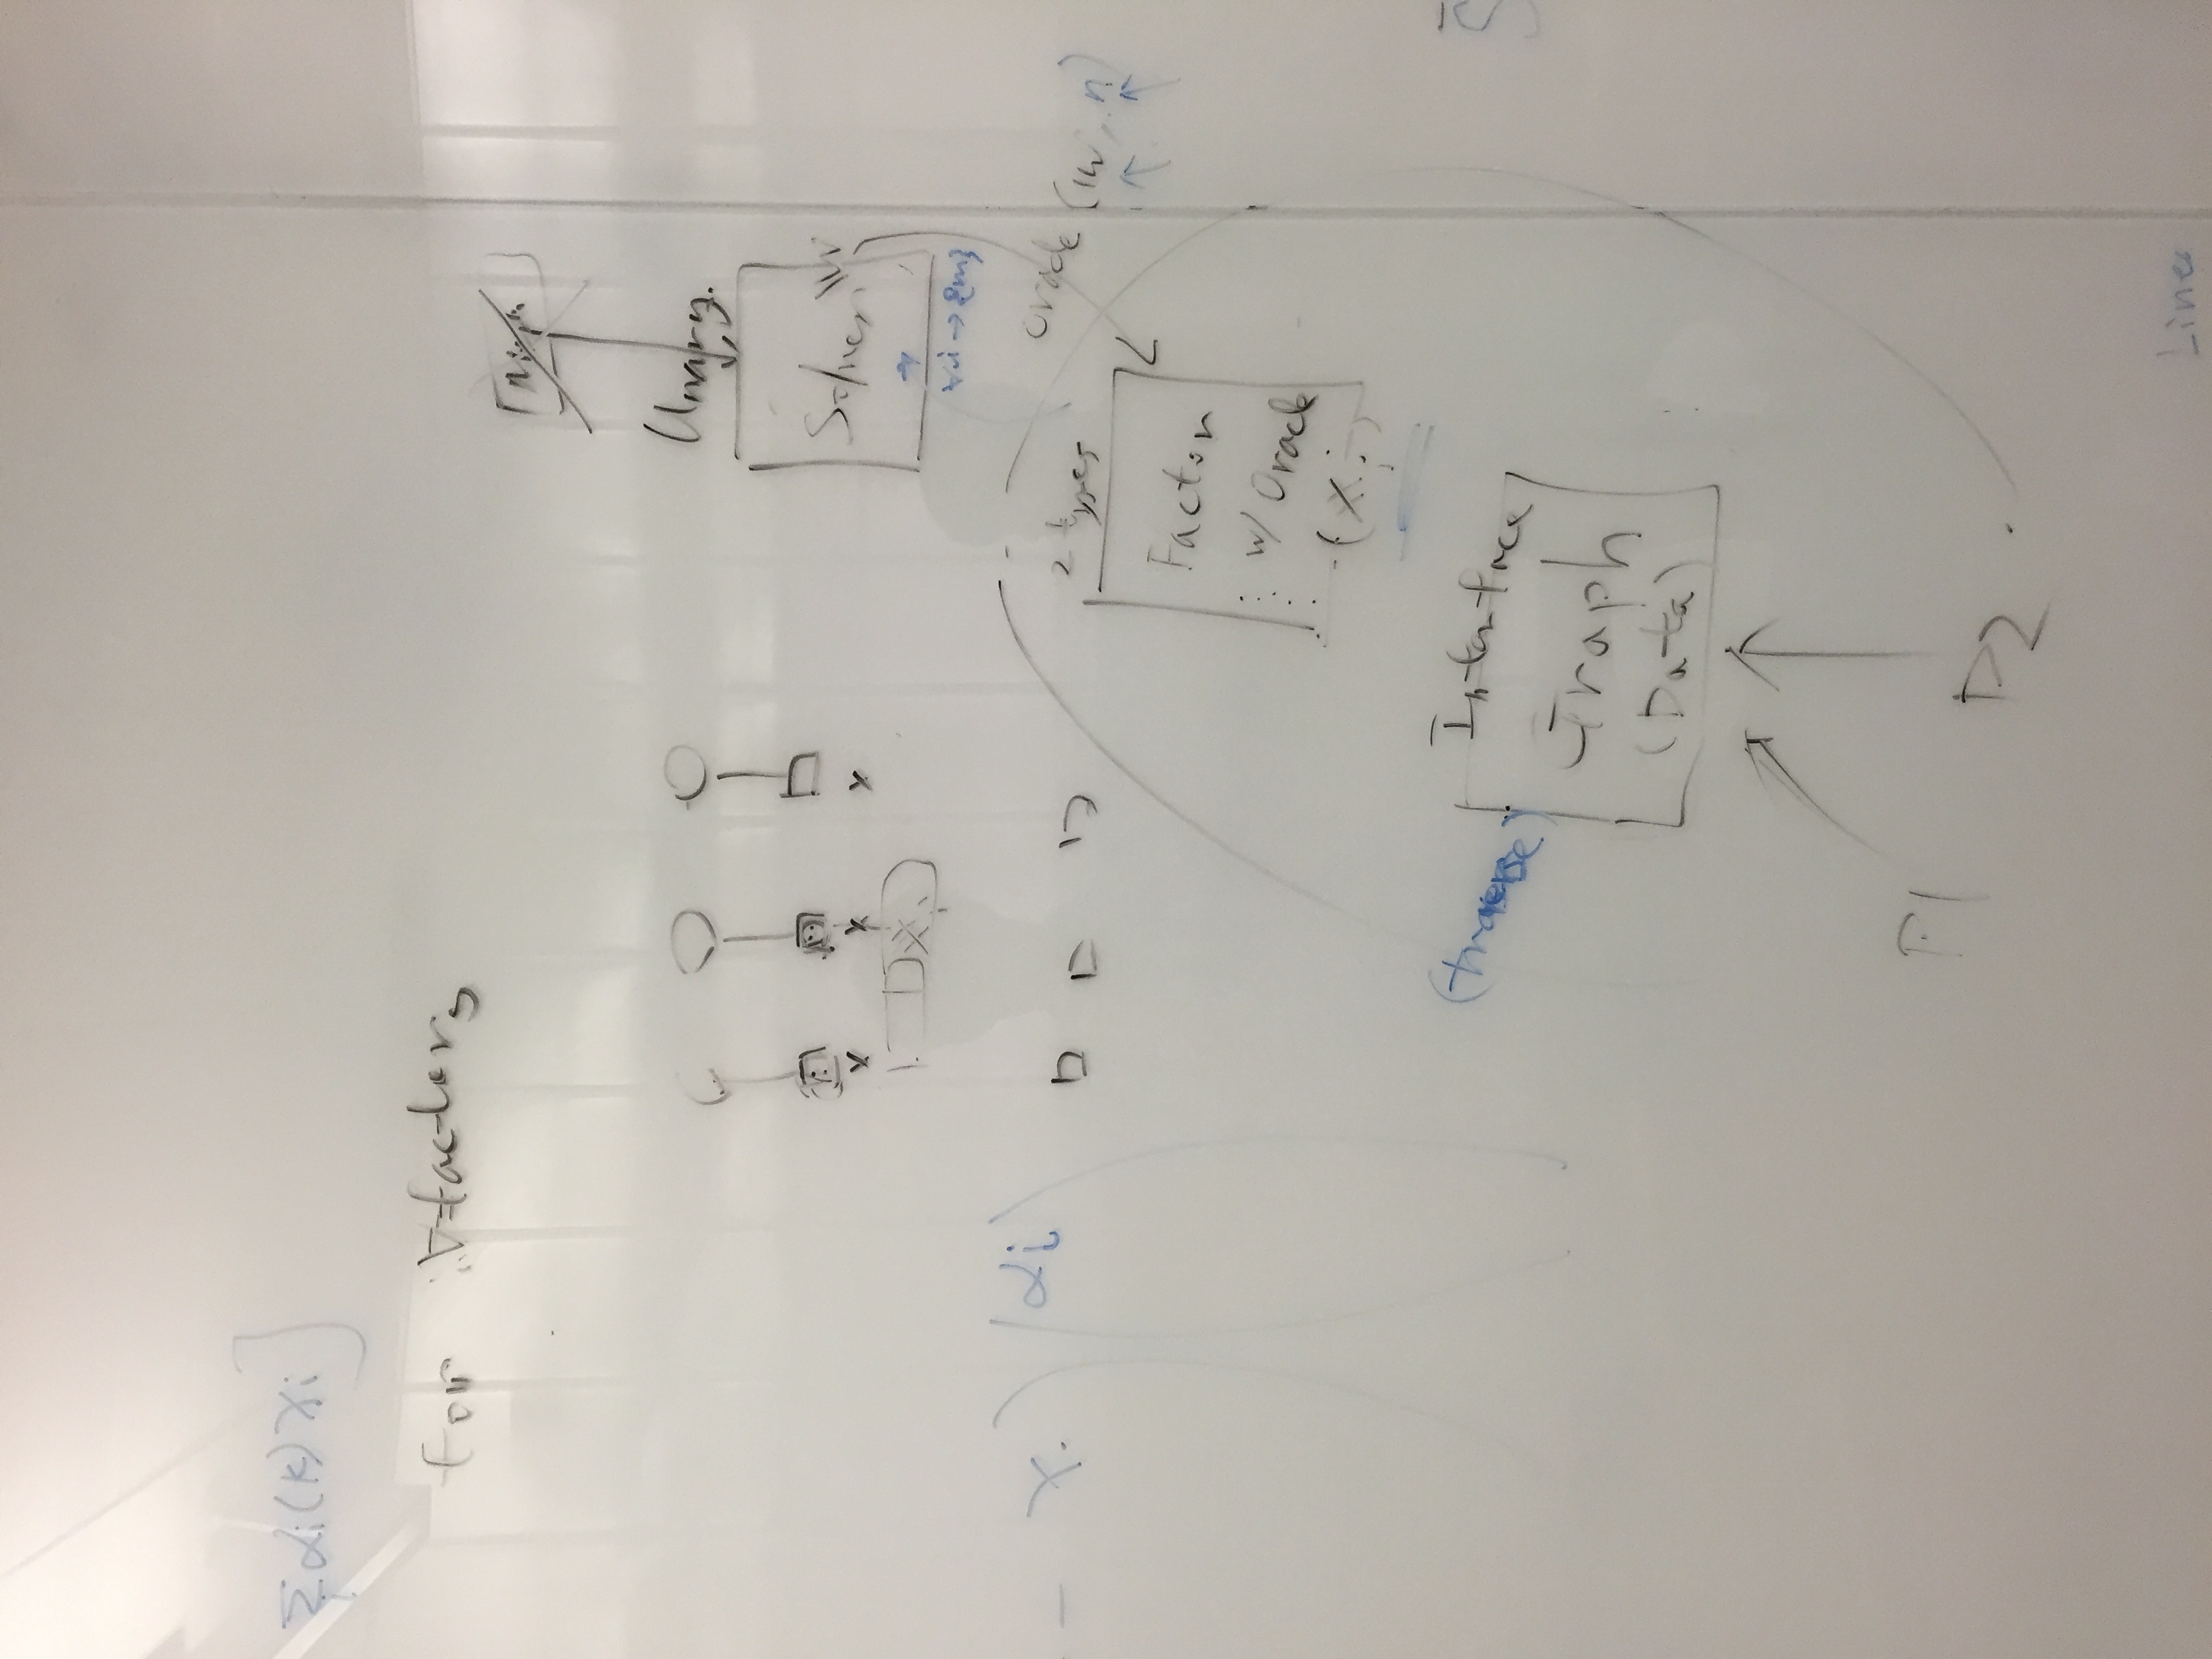 Σαi(k)xi]
for ∀factors
Unary.
Solver
∀i → {m}
x x x
αi
oracle (w, n)
2 types
Factor
w/ Oracle
(Xi)
(traverse)
Interface
Graph
(Data)
D1
D2
Linea